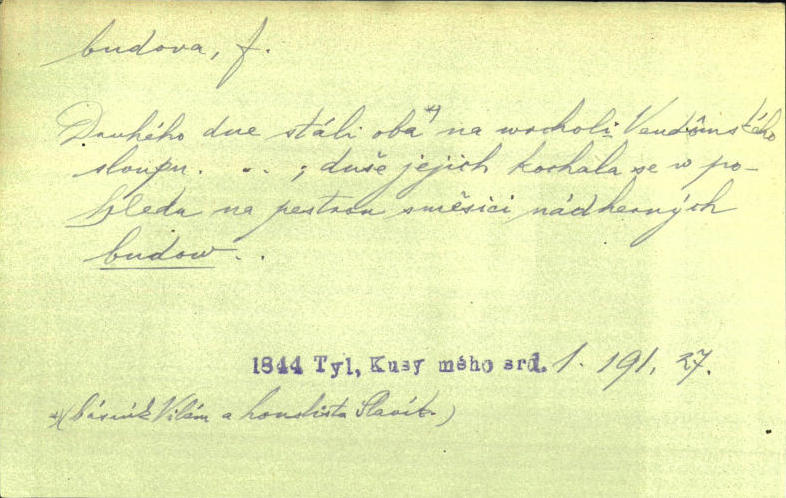 budova, f.
Druhého dne stáli oba*) na wrcholi Vendômského
sloupu. . . ; duše jejich kochala se w po-
hledu na pestrou směsici nádherných
budow . .
1844 Tyl, Kusy mého srd. 1. 191, 27.
*) (básník Vilém a houslista Slavík.)